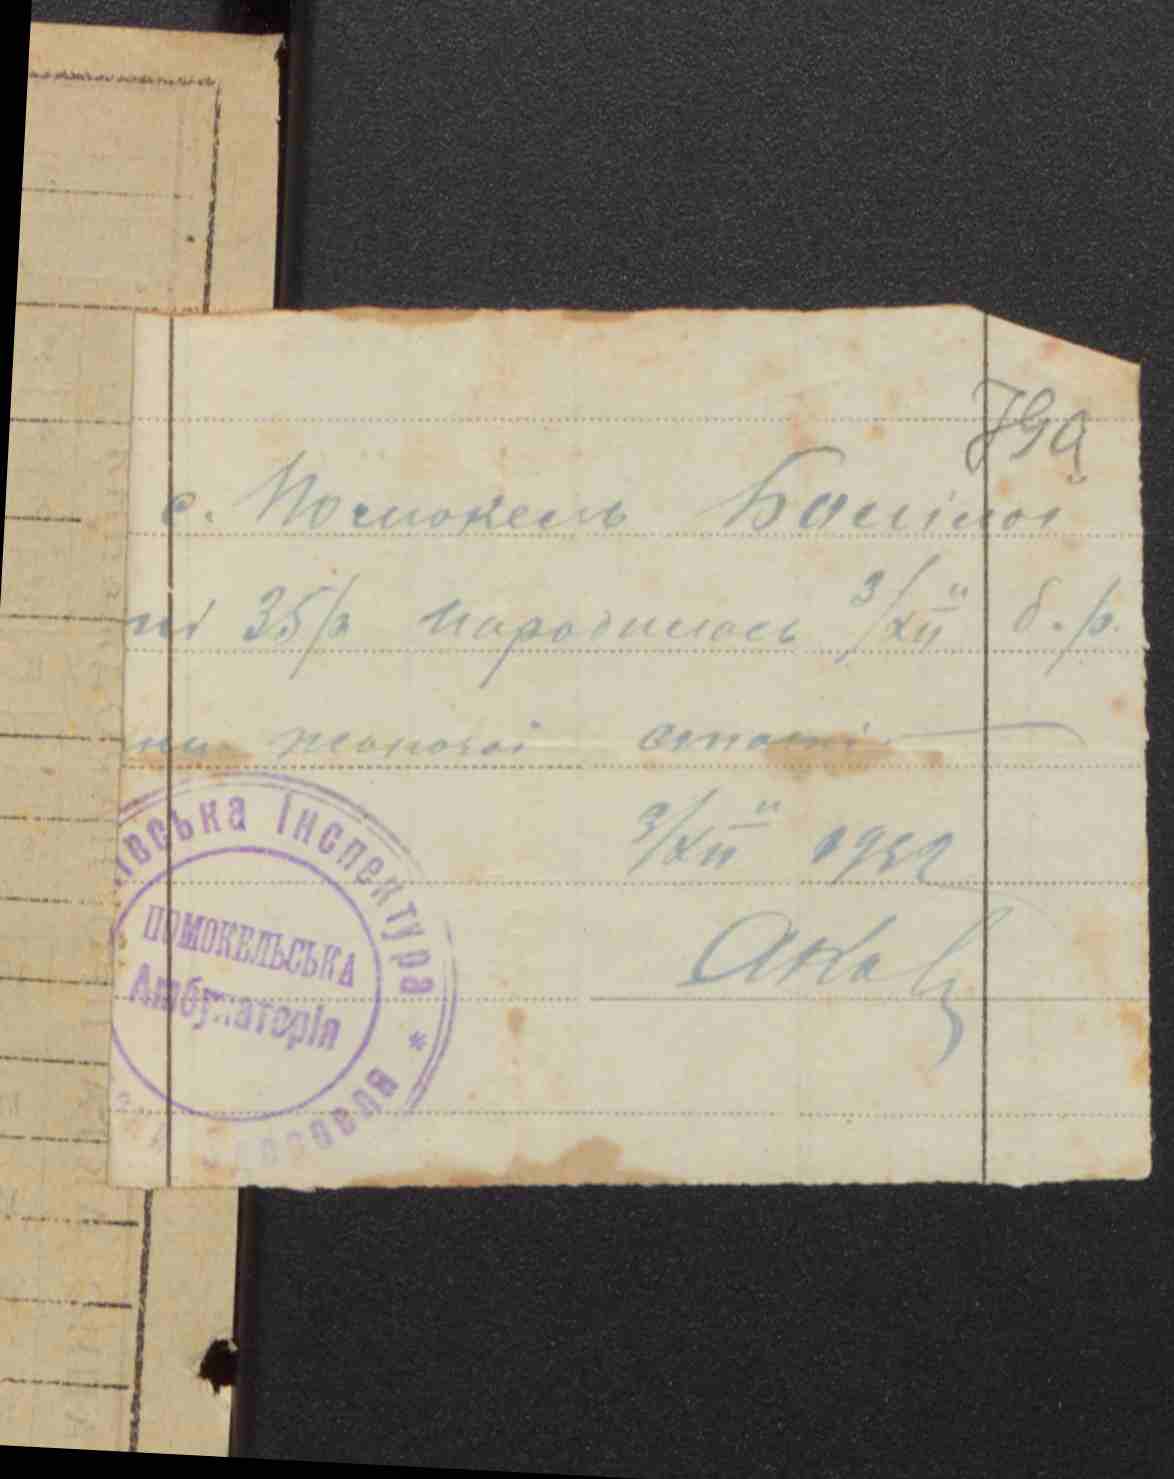 79а
с. Помокель Ботілої
ні 35/р народилась 3/XII б.р.
на жоночої статі
3/XII 1932
івська Інспектура *
ПОМОКЕЛЬСЬКА
Амбулаторія